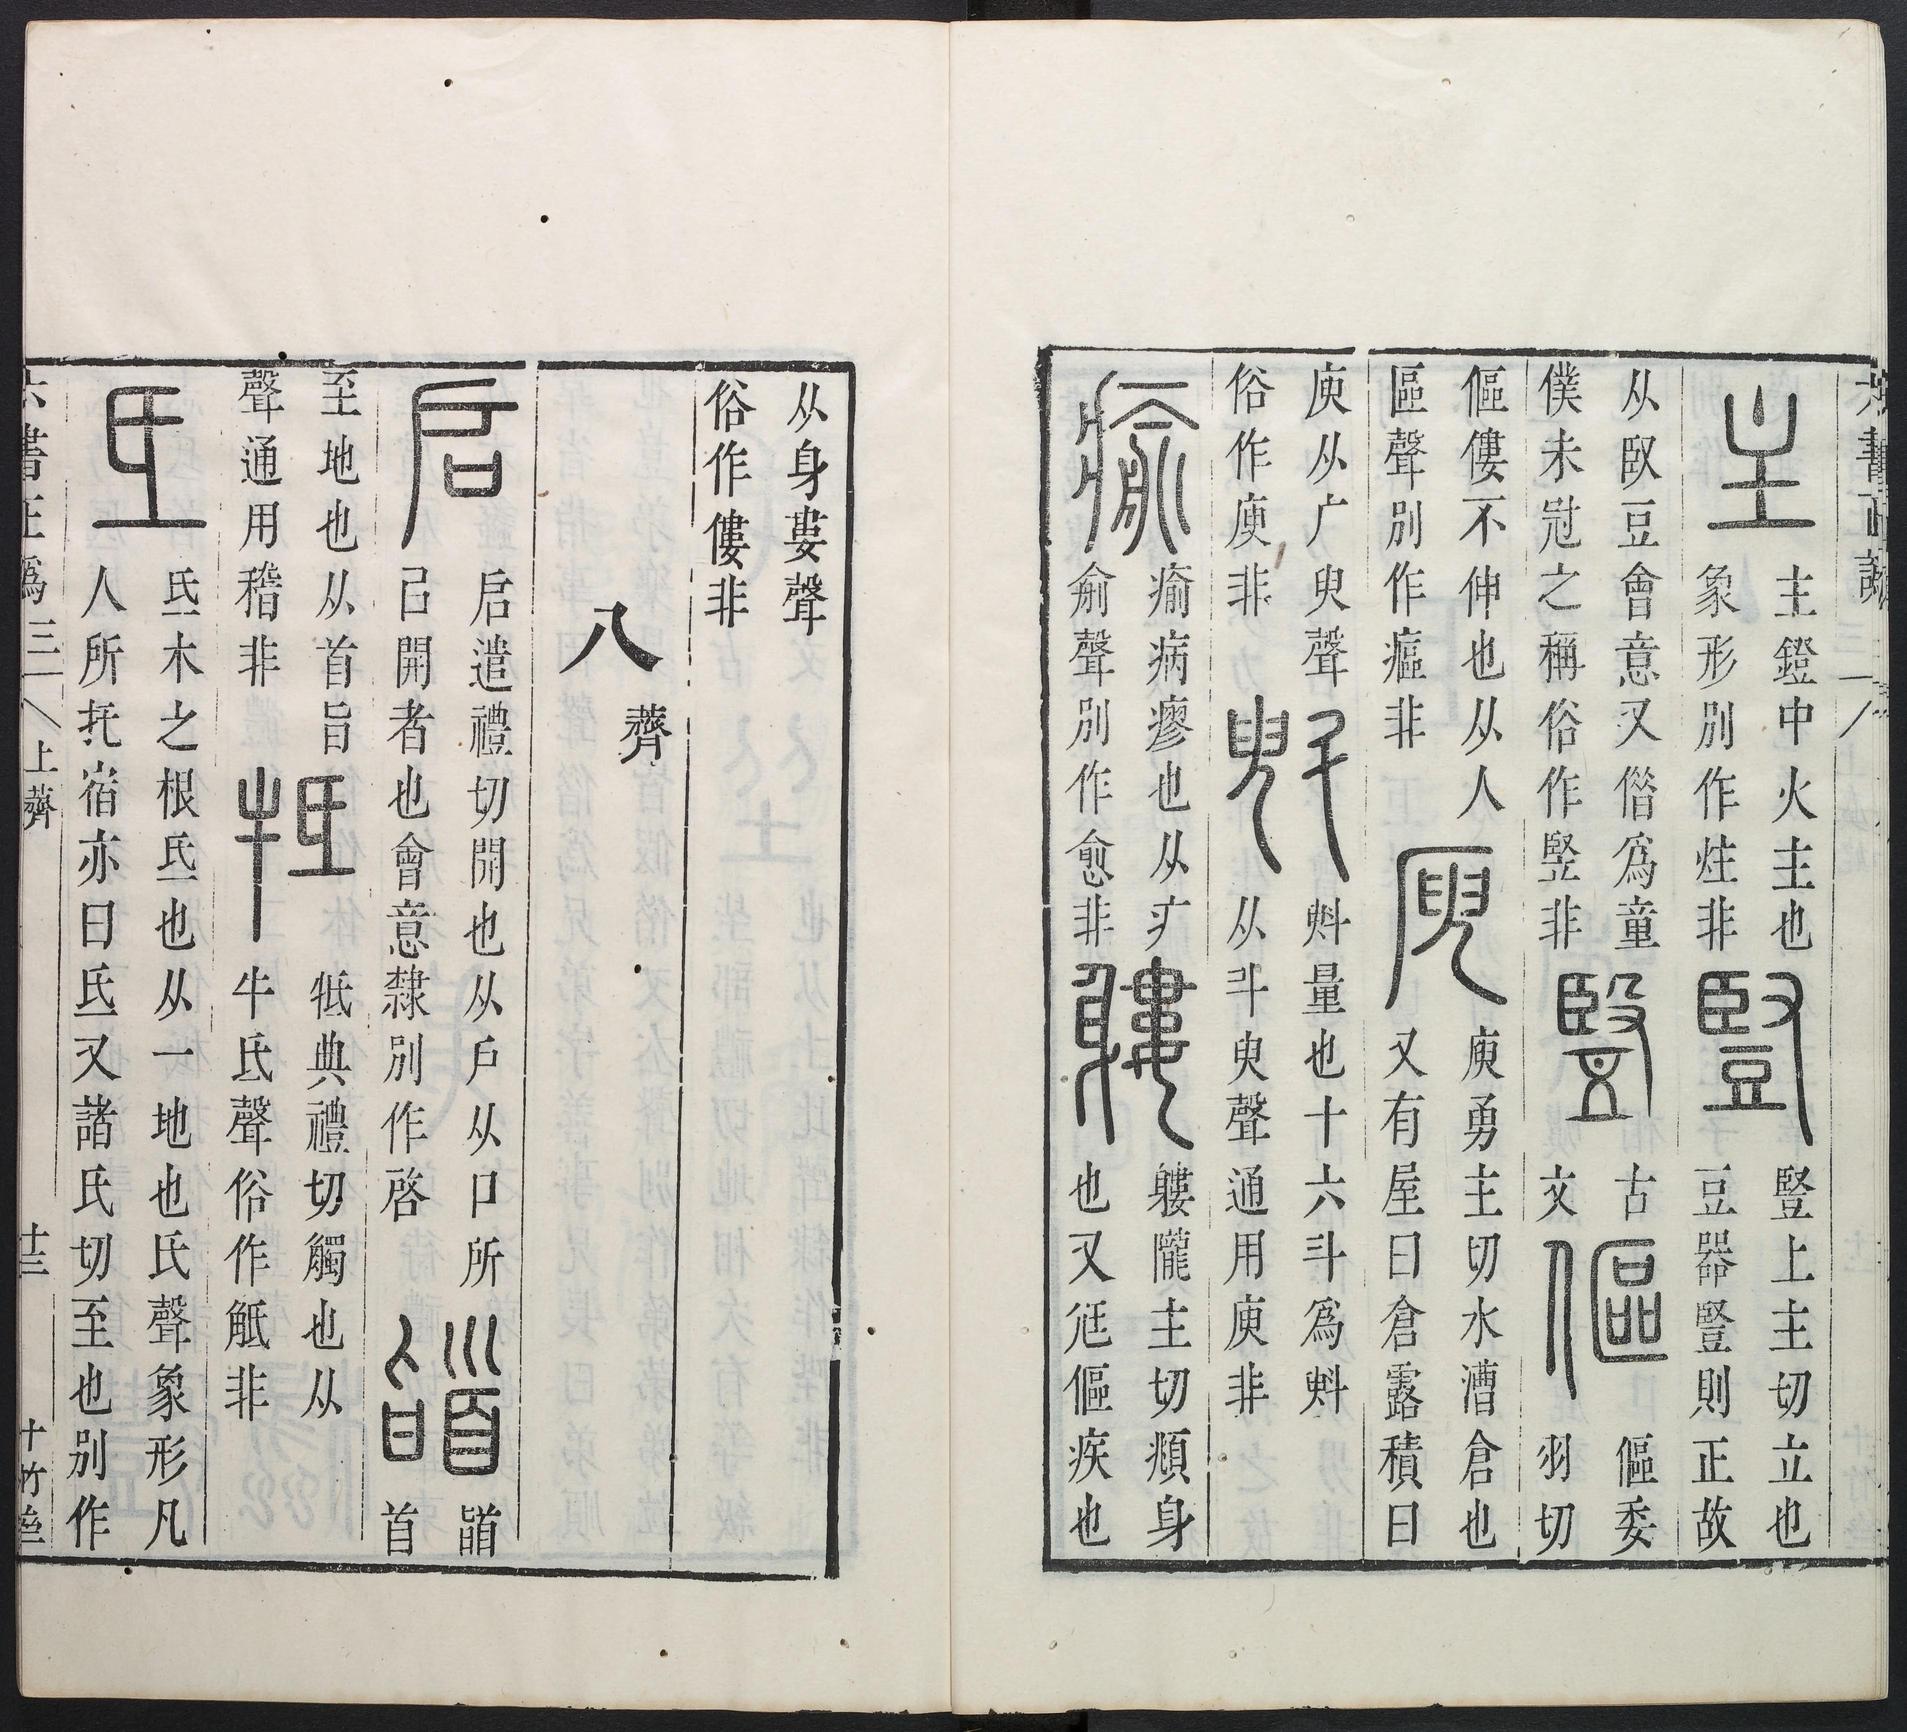 六書正譌
主
主鐙中火主也
象形別作炷非
豎
豎上主切立也
豆器豎則正故
从臤豆會意又僭爲童
僕未冠之稱俗作竪非
古
文
傴
傴委
羽切
傴僂不伸也从人
區聲別作䆰非
庾
庾勇主切水漕倉也
又有屋曰倉露積曰
庾从广臾聲
俗作庾非
斞
斞量也十六斗爲斞
从斗臾聲通用庾非
瘉
瘉病瘳也从疒
俞聲別作愈非
軁
軁隴主切頫身
也又尫傴疾也
从身婁聲
俗作僂非
八
薺
启
启遣禮切開也从戶从口所
己開者也會意隸別作啓
䭫
䭫
首
至地也从首旨
聲通用稽非
牴
牴典禮切觸也从
牛氐聲俗作觝非
氐
氐木之根氐也从一地也氏聲象形凡
人所托宿亦曰氐又諸氏切至也別作
六書正譌三 上薺 十三 十竹齋